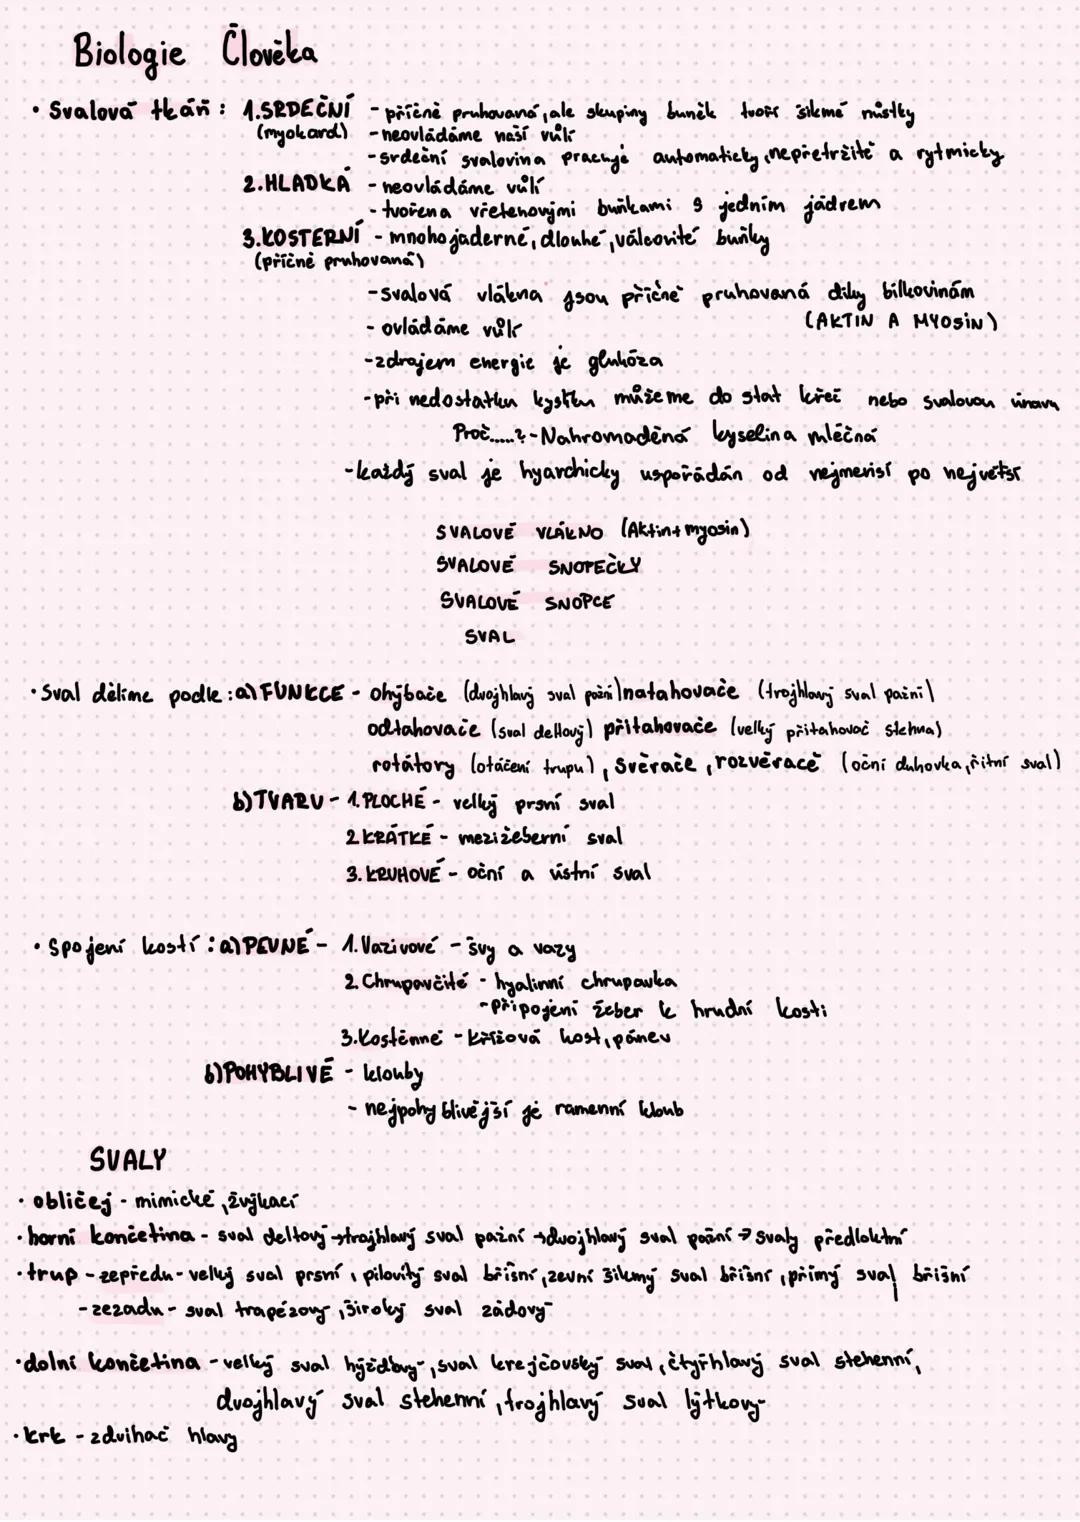 Biologie Člověka
• Svalová tkáň : 1.SRDEČNÍ - příčně pruhovaná, ale skupiny buněk tvoří šikmé můstky
(myokard) - neovládáme naší vůlí
- srdeční svalovina pracuje automaticky, nepřetržitě a rytmicky
2.HLADKÁ - neovládáme vůlí
- tvořena vřetenovými buňkami s jedním jádrem
3.KOSTERNÍ - mnohojaderné, dlouhé, válcovité buňky
(příčně pruhovaná)
- svalová vlákna jsou příčně pruhovaná díky bílkovinám
(AKTIN A MYOSIN)
- ovládáme vůlí
- zdrojem energie je glukóza
- při nedostatku kyslíku můžeme do stat křeč nebo svalovou únavu
Proč.....? - Nahromaděná kyselina mléčná
- každý sval je hyarchicky uspořádán od nejmenší po největší
SVALOVÉ VLÁKNO (Aktin+myosin)
SVALOVÉ SNOPEČKY
SVALOVÉ SNOPCE
SVAL
• Sval dělíme podle : a) FUNKCE - ohýbače (dvojhlavý sval pažní) natahovače (trojhlavý sval pažní)
odtahovače (sval deltový) přitahovače (velký přitahovač stehna)
rotátory (otáčení trupu), svěrače, rozvěrače (oční duhovka, řitní sval)
b) TVARU - 1. PLOCHÉ - velký prsní sval
2. KRÁTKÉ - mezižeberní sval
3. KRUHOVÉ - oční a ústní sval
• Spojení kostí : a) PEVNÉ - 1. Vazivové - švy a vazy
2. Chrupavčité - hyalinní chrupavka
- připojení žeber k hrudní kosti
3. Kostěnné - křížová kost, pánev
b) POHYBLIVÉ - klouby
- nejpohyblivější je ramenní kloub
SVALY
• obličej - mimické, žvýkací
• horní končetina - sval deltový → trojhlavý sval pažní → dvojhlavý sval pažní → svaly předloktní
• trup - zepředu - velký sval prsní, pilovitý sval břišní, zevní šikmý sval břišní, přímý sval břišní
- zezadu - sval trapézový, široký sval zádový
• dolní končetina - velký sval hýžďový, sval krejčovský sval, čtyřhlavý sval stehenní,
dvojhlavý sval stehenní, trojhlavý sval lýtkový
• krk - zdvihač hlavy